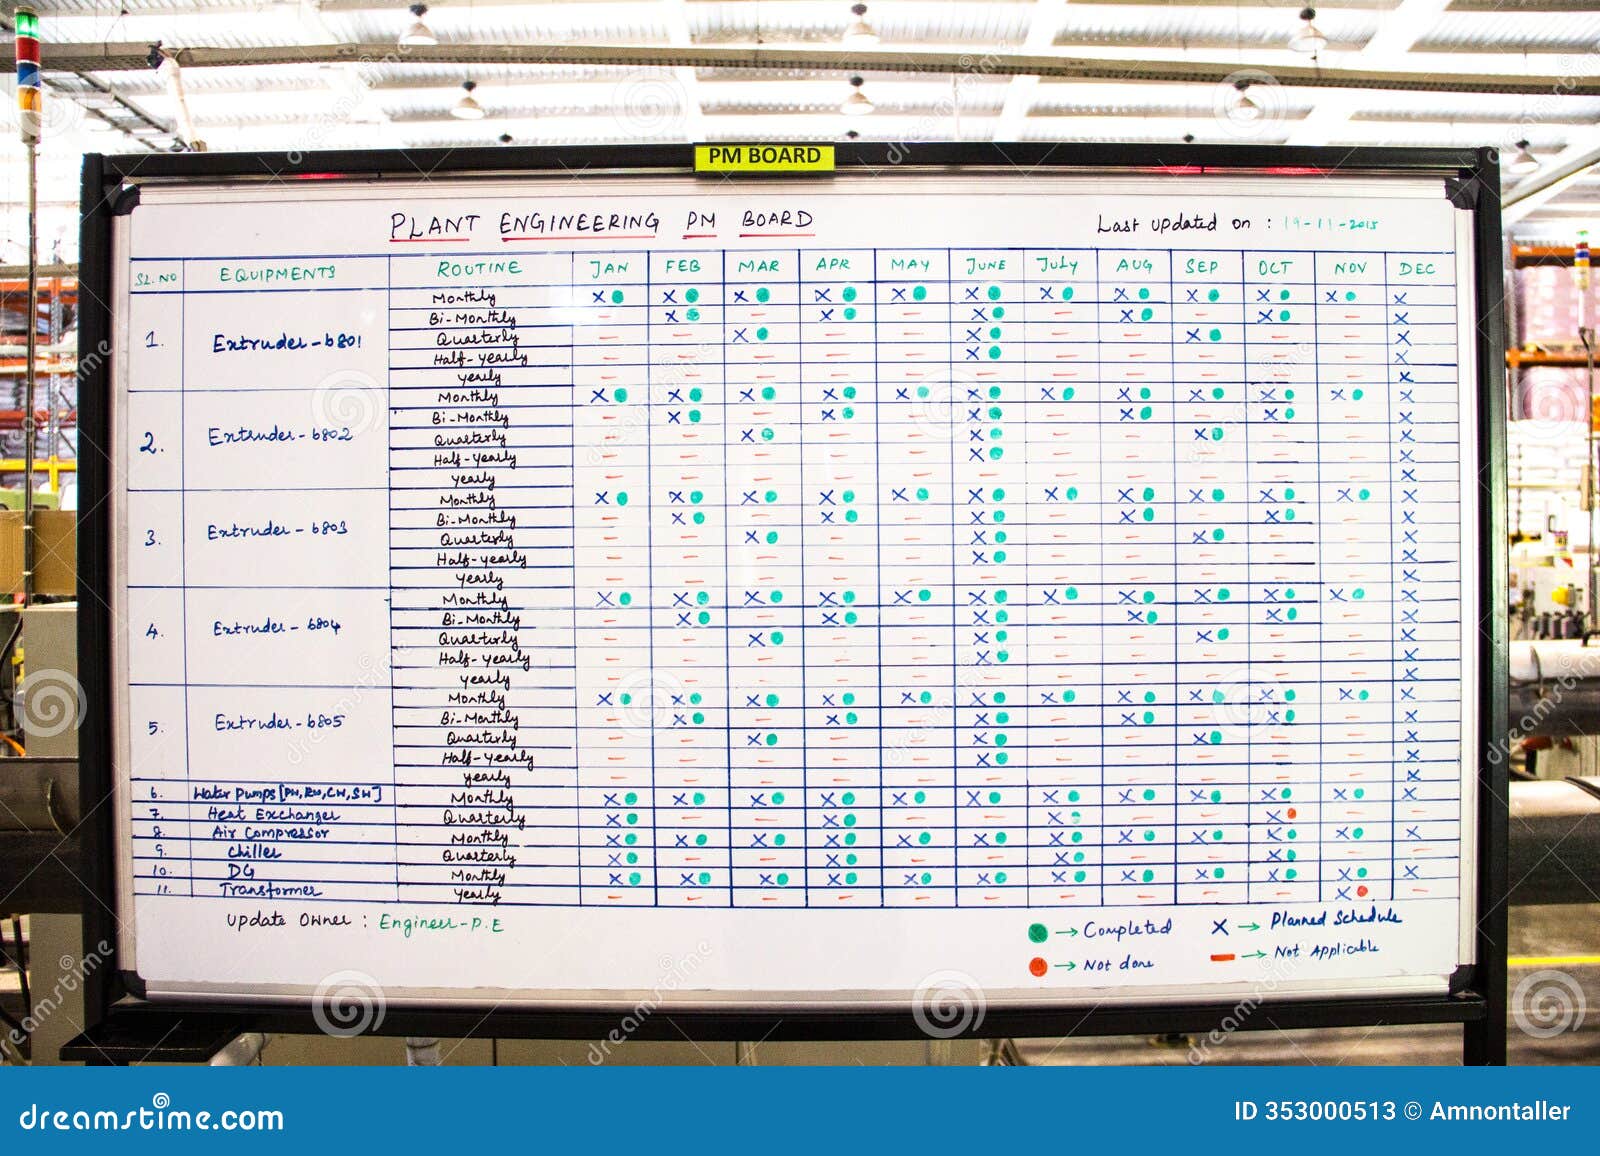 PM BOARD
PLANT ENGINEERING PM BOARD
Last updated on : 19-11-2015
SL.NO EQUIPMENTS ROUTINE JAN FEB MAR APR MAY JUNE JULY AUG SEP OCT NOV DEC
1. Extruder-6801
Monthly
Bi-Monthly
Quarterly
Half-yearly
yearly
2. Extruder-6802
Monthly
Bi-Monthly
Quarterly
Half-yearly
yearly
3. Extruder-6803
Monthly
Bi-Monthly
Quarterly
Half-yearly
yearly
4. Extruder-6804
Monthly
Bi-Monthly
Quarterly
Half-yearly
yearly
5. Extruder-6805
Monthly
Bi-Monthly
Quarterly
Half-yearly
yearly
6. Water Pumps[PW,RW,CW,SW] Monthly
7. Heat Exchanger Quarterly
8. Air Compressor Monthly
9. Chiller Quarterly
10. DG Monthly
11. Transformer Yearly
Update Owner : Engineer-P.E
Completed
Planned Schedule
Not done
Not Applicable
dreamstime.com
ID 353000513 © Amnontaller